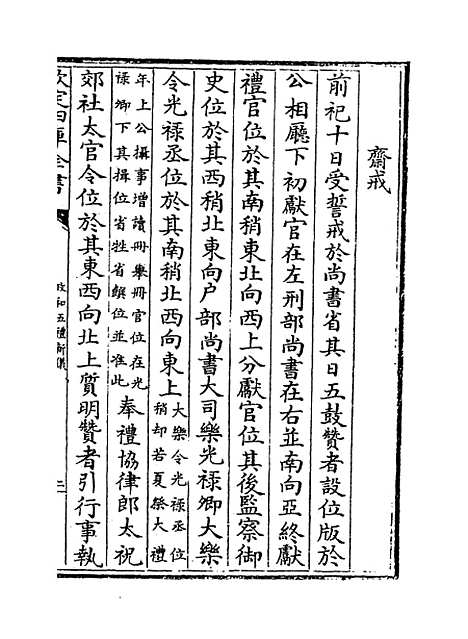 齋戒
前祀十日受誓戒於尚書省其日五鼓贊者設位版於
公相廳下初獻官在左刑部尚書在右並南向亞終獻
禮官位於其南稍東北向西上分獻官位其後監察御
史位於其西稍北東向户部尚書大司樂光禄卿大樂
令光禄丞位於其南稍北西向東上大樂令光禄丞位稍却若夏祭大禮
年上公攝事增讀冊舉冊官位在光禄卿下其揖位省牲省饌位並准此奉禮協律郎太祝
郊社太官令位於其東西向北上質明贊者引行事執
欽定四庫全書
政和五禮新儀
二